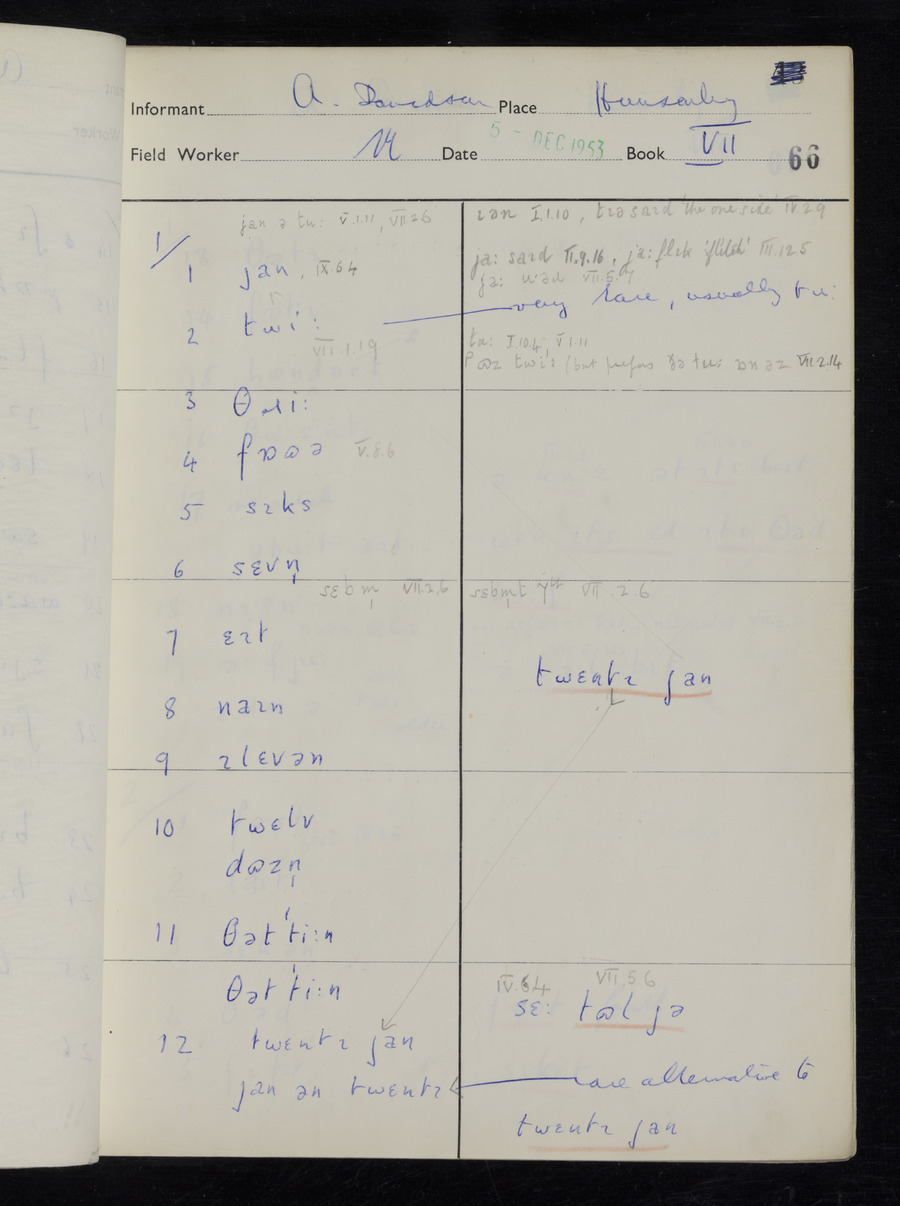 Informant A. Davidson Place Hunsonby
Field Worker Date 5 - DEC 1953 Book VII 66
1/
jan ə tu: V.1.11, VII.2.6
1 jan, IX.6.4
2 twi:
VII.1.19
ɪan I.1.10, tɪəsaɪd 'the one side' IV.2.9
ja: saɪd II.9.16, ja: flɪk 'flitch' III.12.5
ja: wəd VII.5.7
very rare, usually tu:
tu: I.10.4, V.1.11
ʊz twi: (but prefers ðə tu: ɒn əz VII.2.14
3 θɹi:
4 fɒʊə V.8.6
5 sɪks
6 sɛvn̩
sɛbm̩ VII.2.6
sɛbm̩t VII.2.6
7 ɛɪt
8 naɪn
9 ɪlɛvən
twɛntɪ jan
10 twɛlv
dʊzn̩
11 θət'ti:n
θət'ti:n
12 twɛntɪ jan
jan ən twɛntɪ
IV.6.4 VII.5.6
sɛ: tʊl jə
are alternative to
twɛntɪ jan